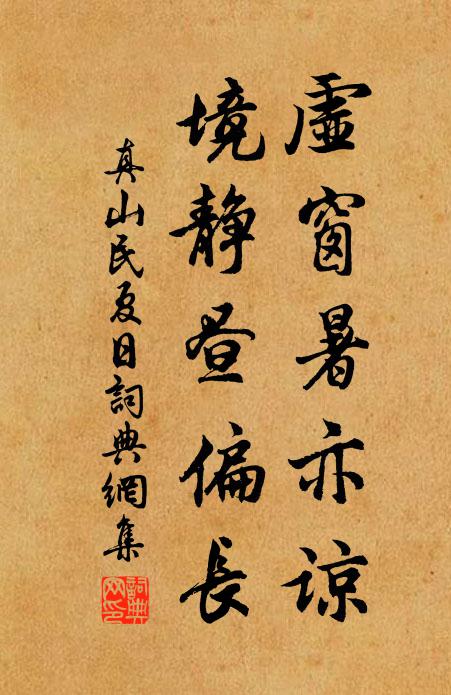 虛窗暑亦諒
境靜晝偏長
真山民夏日詞典網集
詞典網印